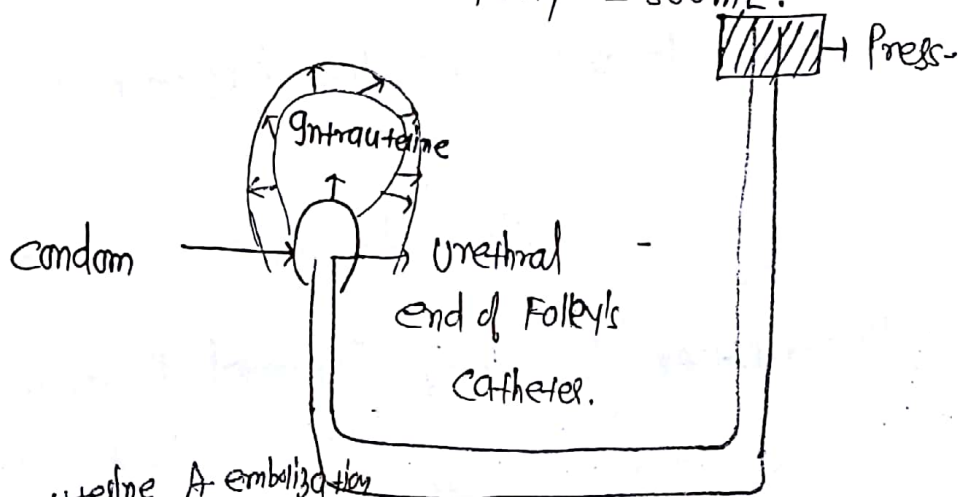 = 500mL.
Press-
Intrauterine
Condom
Urethral
end of Folley's
Catheter.
uterine A embolization